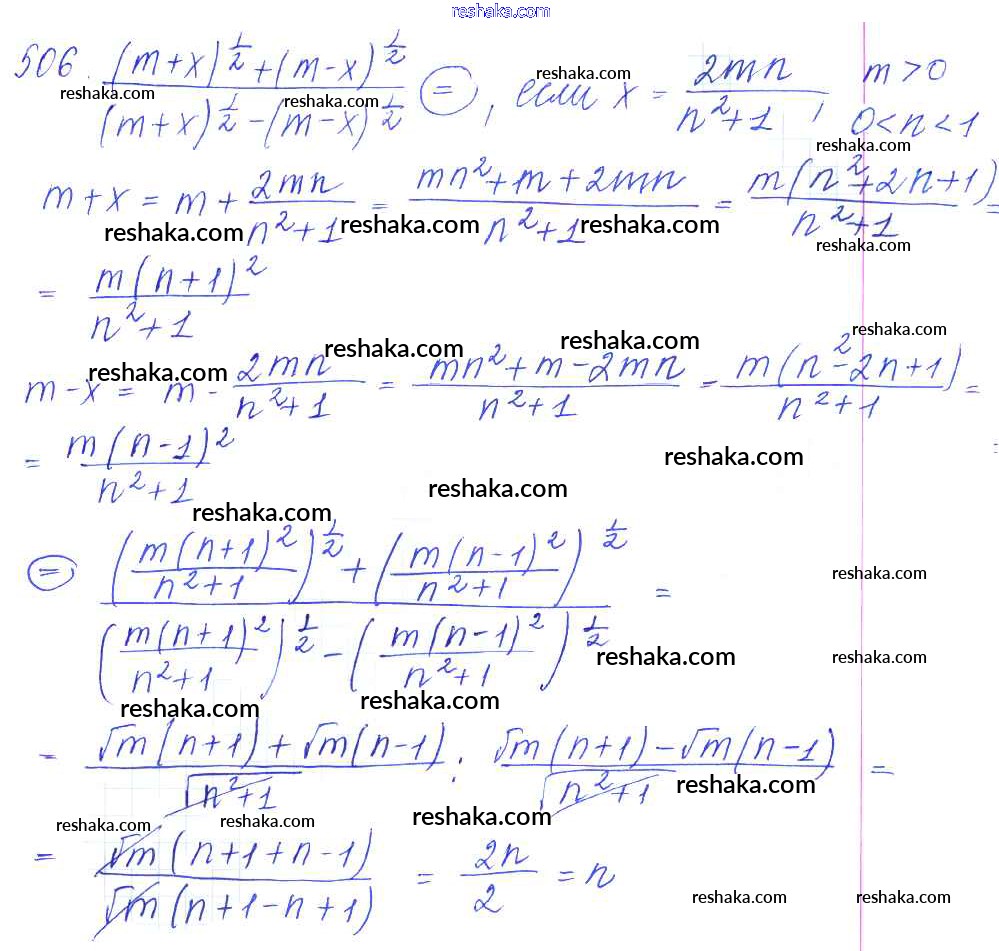 reshaka.com
506. ((m+x)^(1/2) + (m-x)^(1/2)) / ((m+x)^(1/2) - (m-x)^(1/2)) (=), если x = 2mn / (n²+1), m>0
0<n<1
reshaka.com reshaka.com reshaka.com
m+x = m + 2mn / (n²+1) = (mn²+m+2mn) / (n²+1) = m(n²+2n+1) / (n²+1) =
reshaka.com reshaka.com reshaka.com reshaka.com
= m(n+1)² / (n²+1)
reshaka.com reshaka.com reshaka.com reshaka.com
m-x = m - 2mn / (n²+1) = (mn²+m-2mn) / (n²+1) = m(n²-2n+1) / (n²+1) =
= m(n-1)² / (n²+1)
reshaka.com reshaka.com reshaka.com
(=) ((m(n+1)² / (n²+1))^(1/2) + (m(n-1)² / (n²+1))^(1/2)) / ((m(n+1)² / (n²+1))^(1/2) - (m(n-1)² / (n²+1))^(1/2)) =
reshaka.com reshaka.com reshaka.com
reshaka.com reshaka.com
= (√m(n+1)+√m(n-1)) / √(n²+1) : (√m(n+1)-√m(n-1)) / √(n²+1) =
reshaka.com reshaka.com reshaka.com reshaka.com
= √m(n+1+n-1) / √m(n+1-n+1) = 2n / 2 = n
reshaka.com reshaka.com